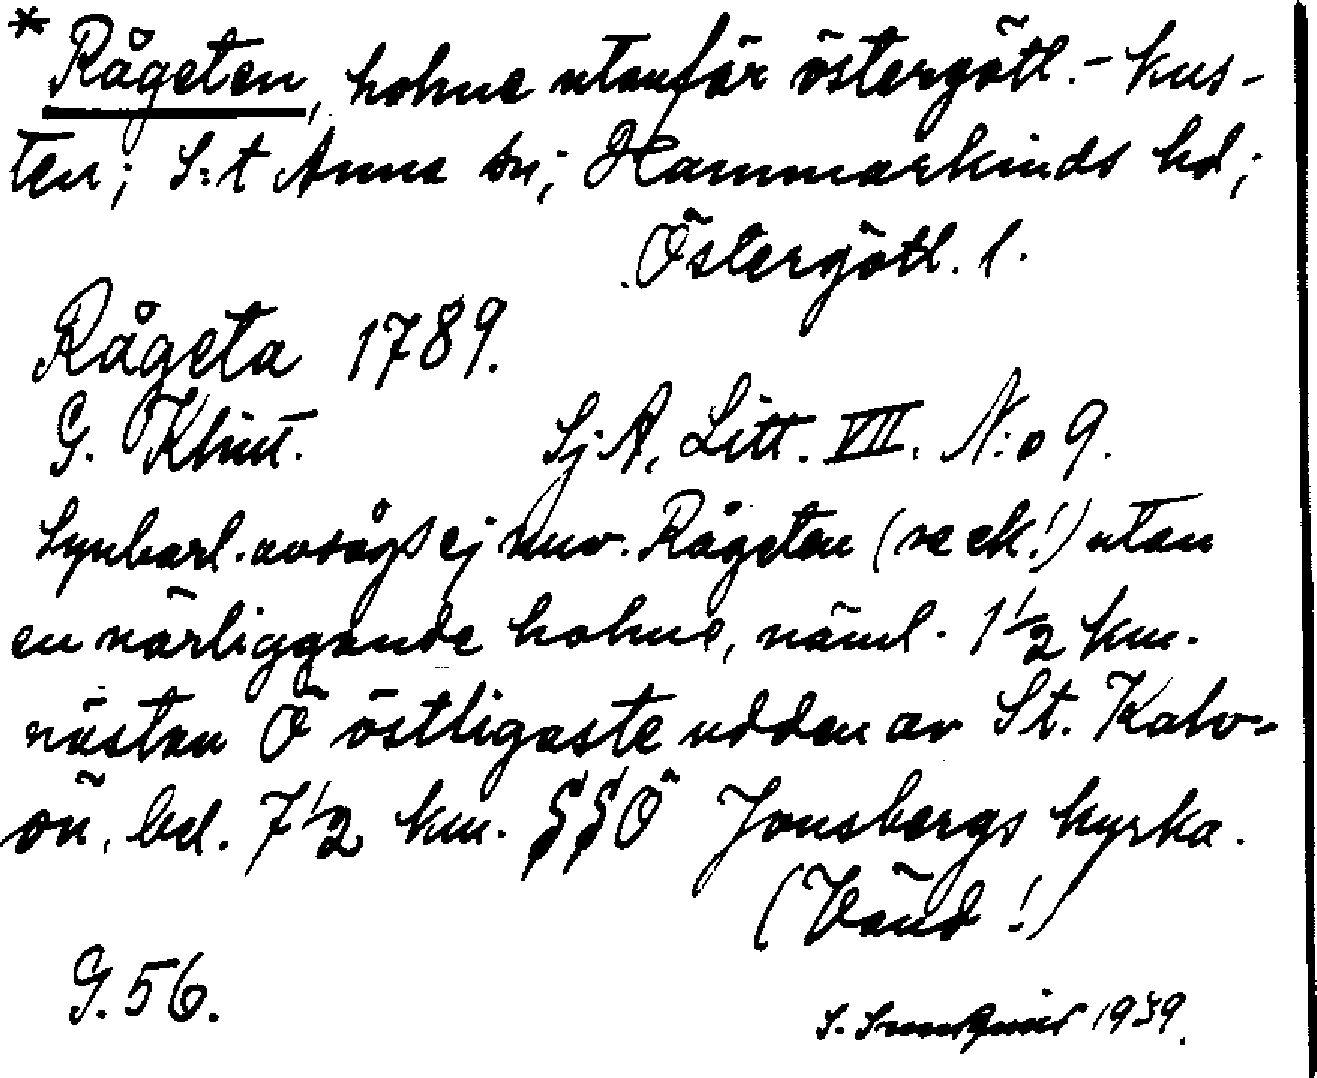 * Rågeten, holme utanför östergötl.- kus-
ten; S:t Anna sn; Hammarkinds hd;
Östergötl. l.
Rågeta 1789.
G. Klint. Sj A, Litt. VII. N:o 9.
Synbarl. avsågs ej nuv. Rågeten (se ek!) utan
en närliggande holme, näml. 1½ km.
nästan Ö östligaste udden av St. Kalv-
ön, bel. 7½ km. SSÖ Jonsbergs kyrka.
(Vänd!)
G. 56.
S. 1939.